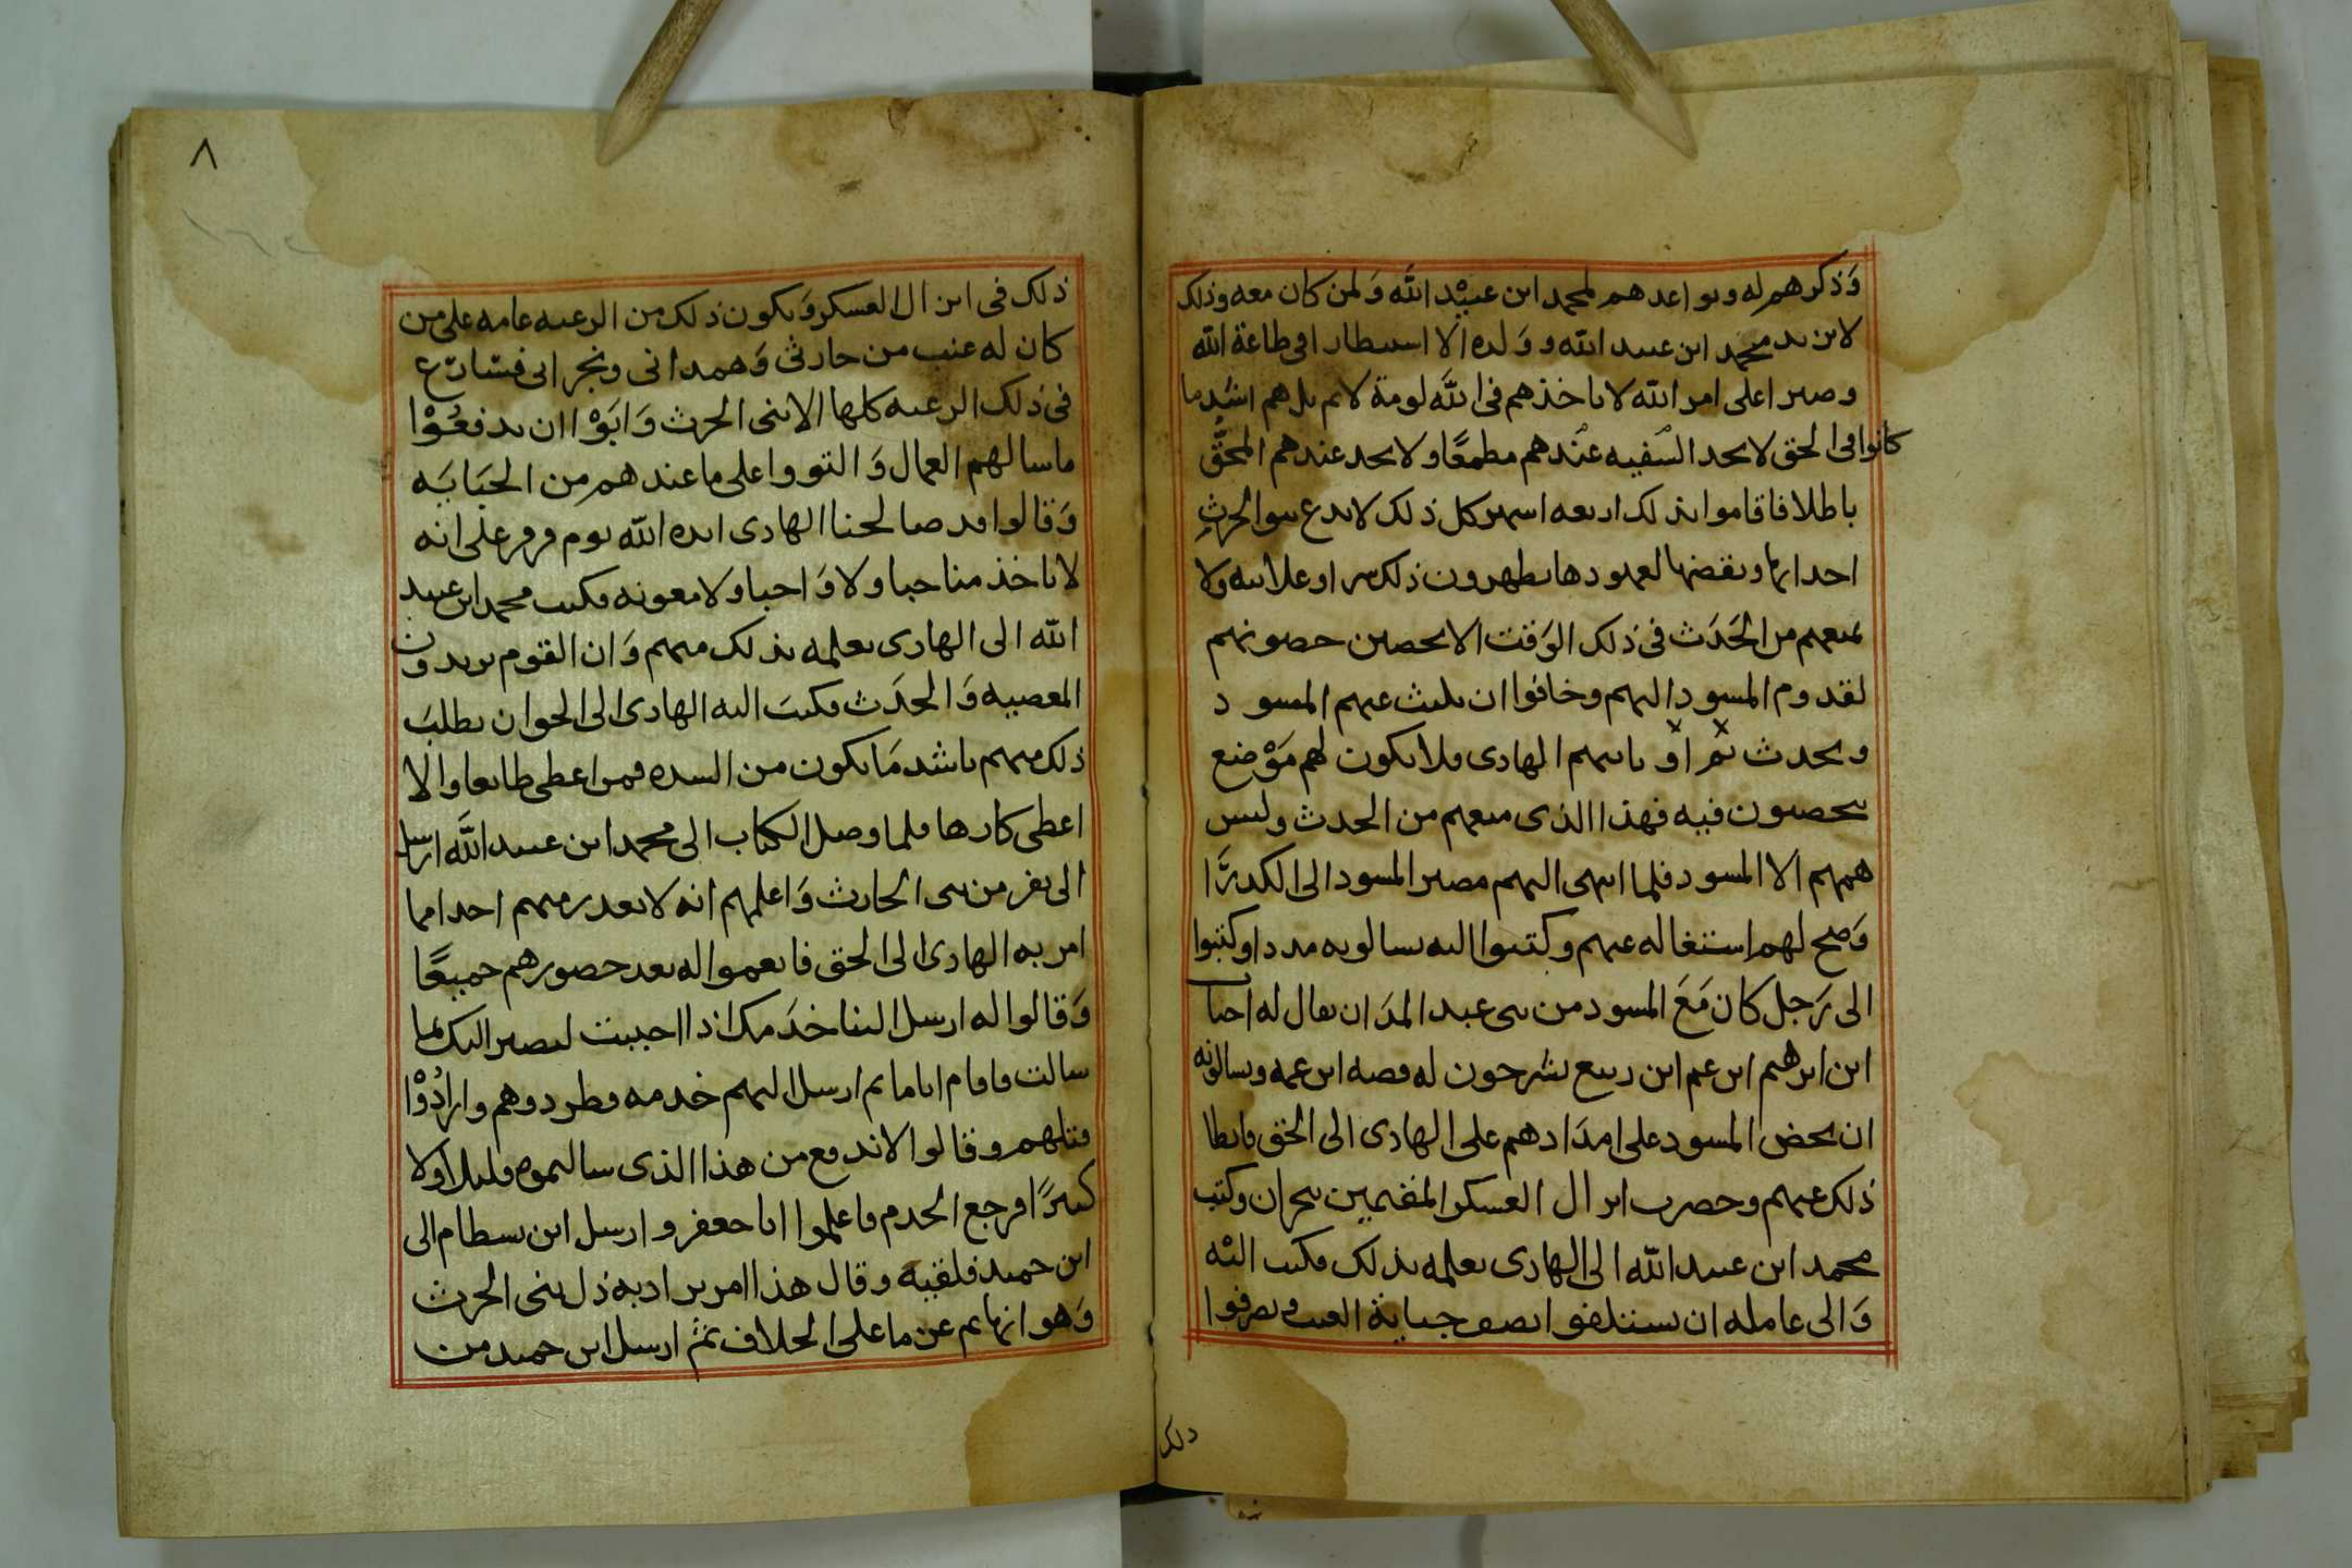 وَذكرهم له وىواعدهم لمحمد ابن عبيْد اللَّه وَلمن كان معه وذلك
لا يزيد محمد ابن عبيد الله وَولده الا استبطارا فى طاعة الله
وصبرا على امر الله لا ياخذهم فى اللَّه لومة لائم بل هم اشد ما
كانوا فى الحق لا يجد السفيه عندهم مطمعًا ولا يجد عندهم المحقّ
باطلا فاقاموا بذلك اربعه اسهر كل ذلك لا يدع بنوا الحرثِ
احداثها ونقضها لعهودها يظهرون ذلك سرا وعلانيه ولا
يمنعهم من الحَدَث فى ذلك الوَقت الا تحصين حصونهم
لقدوم المسود اليهم وخافوا ان يلبث عنهم المسود
ويحدث ثم اوْ ياتيهم الهادى فلا يكون لهم مَوْضع
يحصنون فيه فهذا الذى منعهم من الحدث وليس
همهم الا المسود فلما انتهى اليهم مصير المسود الى الكدرَّا
وَصح لهم استغاله عنهم وكتبوا اليه يسالونه مددا وكتبوا
الى رَجل كان مَعَ المسود من بنى عبد المدَان يقال له احيا
ابن ابرهيم ابن عم ابن ربيع يشرحون له قصه ابن عمه ويسالونه
ان يحض المسود على امدَادهم على الهادى الى الحق فابطا
ذلك عنهم وحضرت انزال العسكر المقيمين بنجران وكتب
محمد ابن عبيد الله الى الهادى يعلمه بذلك فكتب اليْه
وَالى عامله ان يستلفوا نصف جباية العنب ويصرفوا
ذلك
٨
ذلك فى انزال العسكر وَيكون ذلك من الرعيه عامه على من
كان له عنب من حارثى وَهمدانى ونجرانى فتسارع
فى ذلك الرعيه كلها الا بنى الحرث وَابَوْا ان يدفعُوْا
ما سالهم العمال وَالتووا على ما عندهم من الجبَايَه
وَقالوا قد صالحنا الهادى ايده الله يوم فرفر على انه
لا ياخذ منا حبا ولا وَاحبا ولا معونه فكتب محمد ابن عبيد
الله الى الهادى يعلمه بذلك منهم وَان القوم يريدون
المعصيه وَالحدَث فكتبَ اليه الهادى الى الحق ان يطلبَ
ذلك منهم باشد مَا يكون من الشده فمن اعطى طايعا والا
اعطى كارها فلما وصل الكتاب الى محمد ابن عبيد اللَّه ارسل
الى نفر من بنى الحارث وَاعلمهم انه لا يعدر منهم احدا مما
امر به الهادى الى الحق فانعموا له بعد حضورهم جميعًا
وَقالوا له ارسل الينا خدَمك اذا احببت ليصير اليك بما
سالت فاقام اياما ثم ارسل اليهم خدمه فطردوهم وارَادُوْا
قتلهم وقالوا لا ندفع من هذا الذى سالتموه قليلا ولا
كثيرًا فرجع الخدم فاعلموا ابا جعفر وارسل ابن بسطام الى
ابن حميد فلقيه وقال هذا امر يراد به ذل بنى الحرث
وَهو انها عم عن ما على الخلاف ثمَّ ارسل ابن حميد من